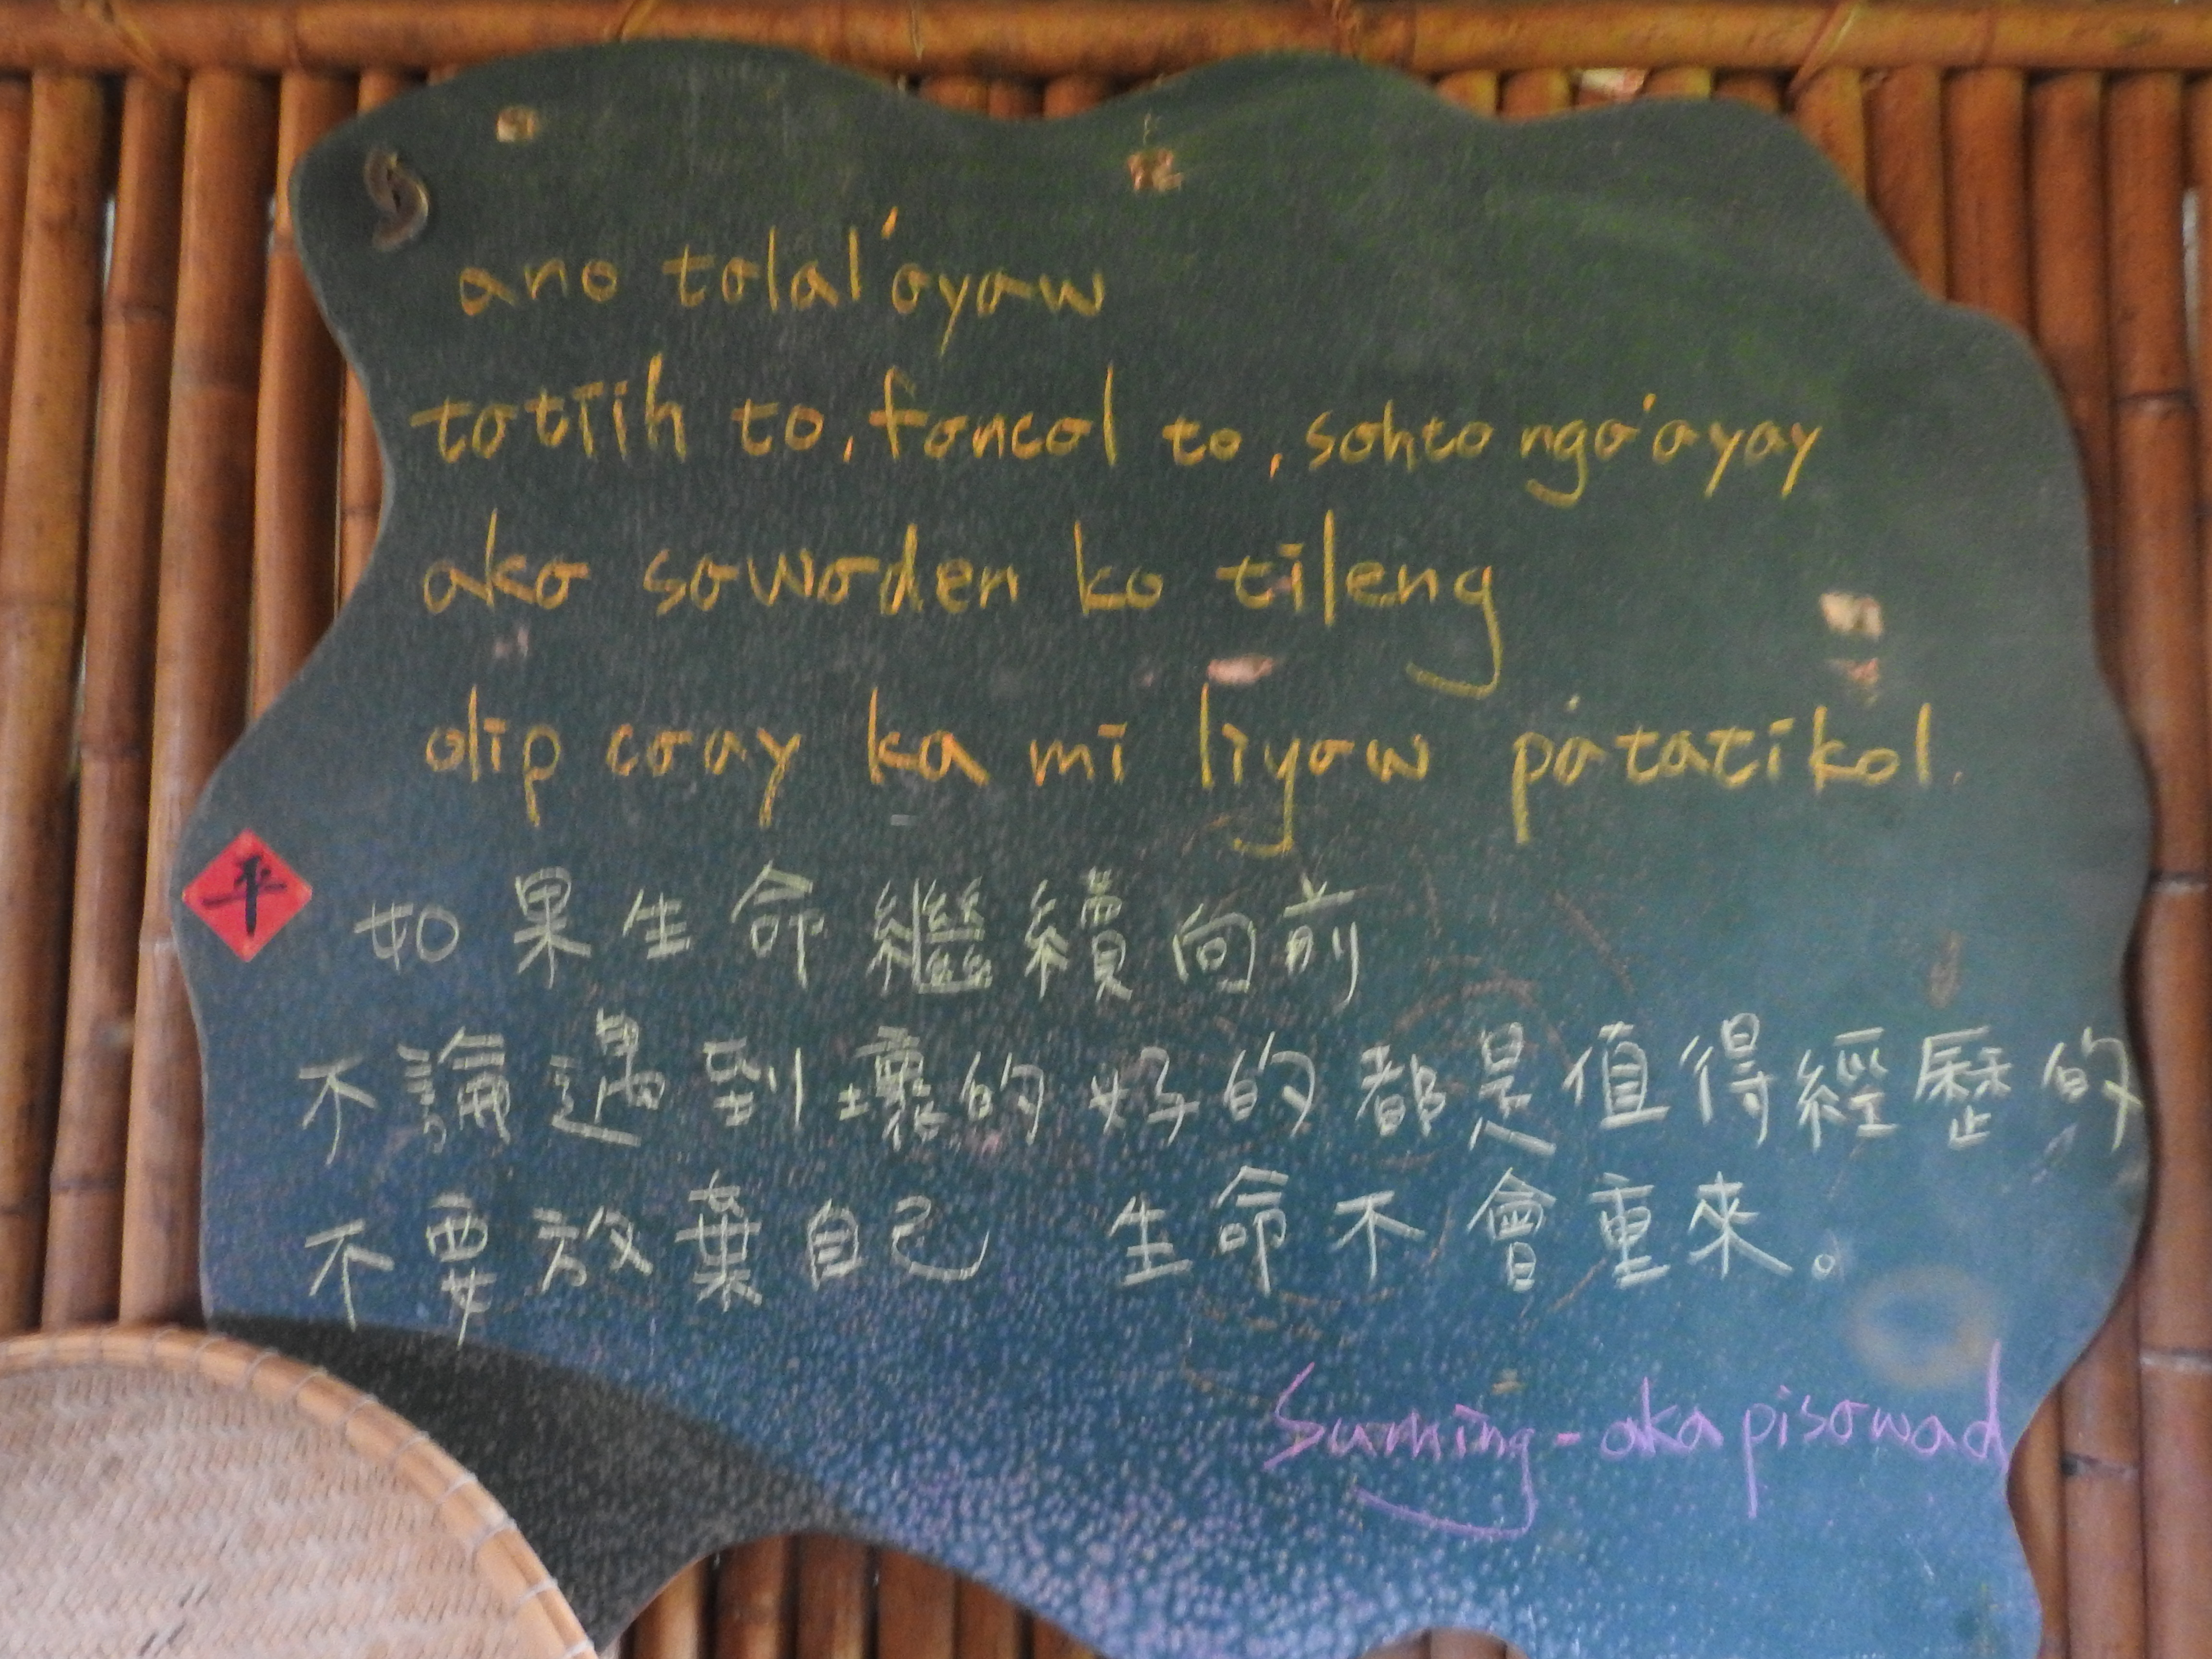 ano talal'ayaw
tatiih to, fancal to, sahto nga'ayay
aka sawaden ko tileng
olip caay ka mi liyaw patatikol.
平
如果生命繼續向前
不論遇到壞的好的都是值得經歷的
不要放棄自己 生命不會重來。
Suming - aka pisawad